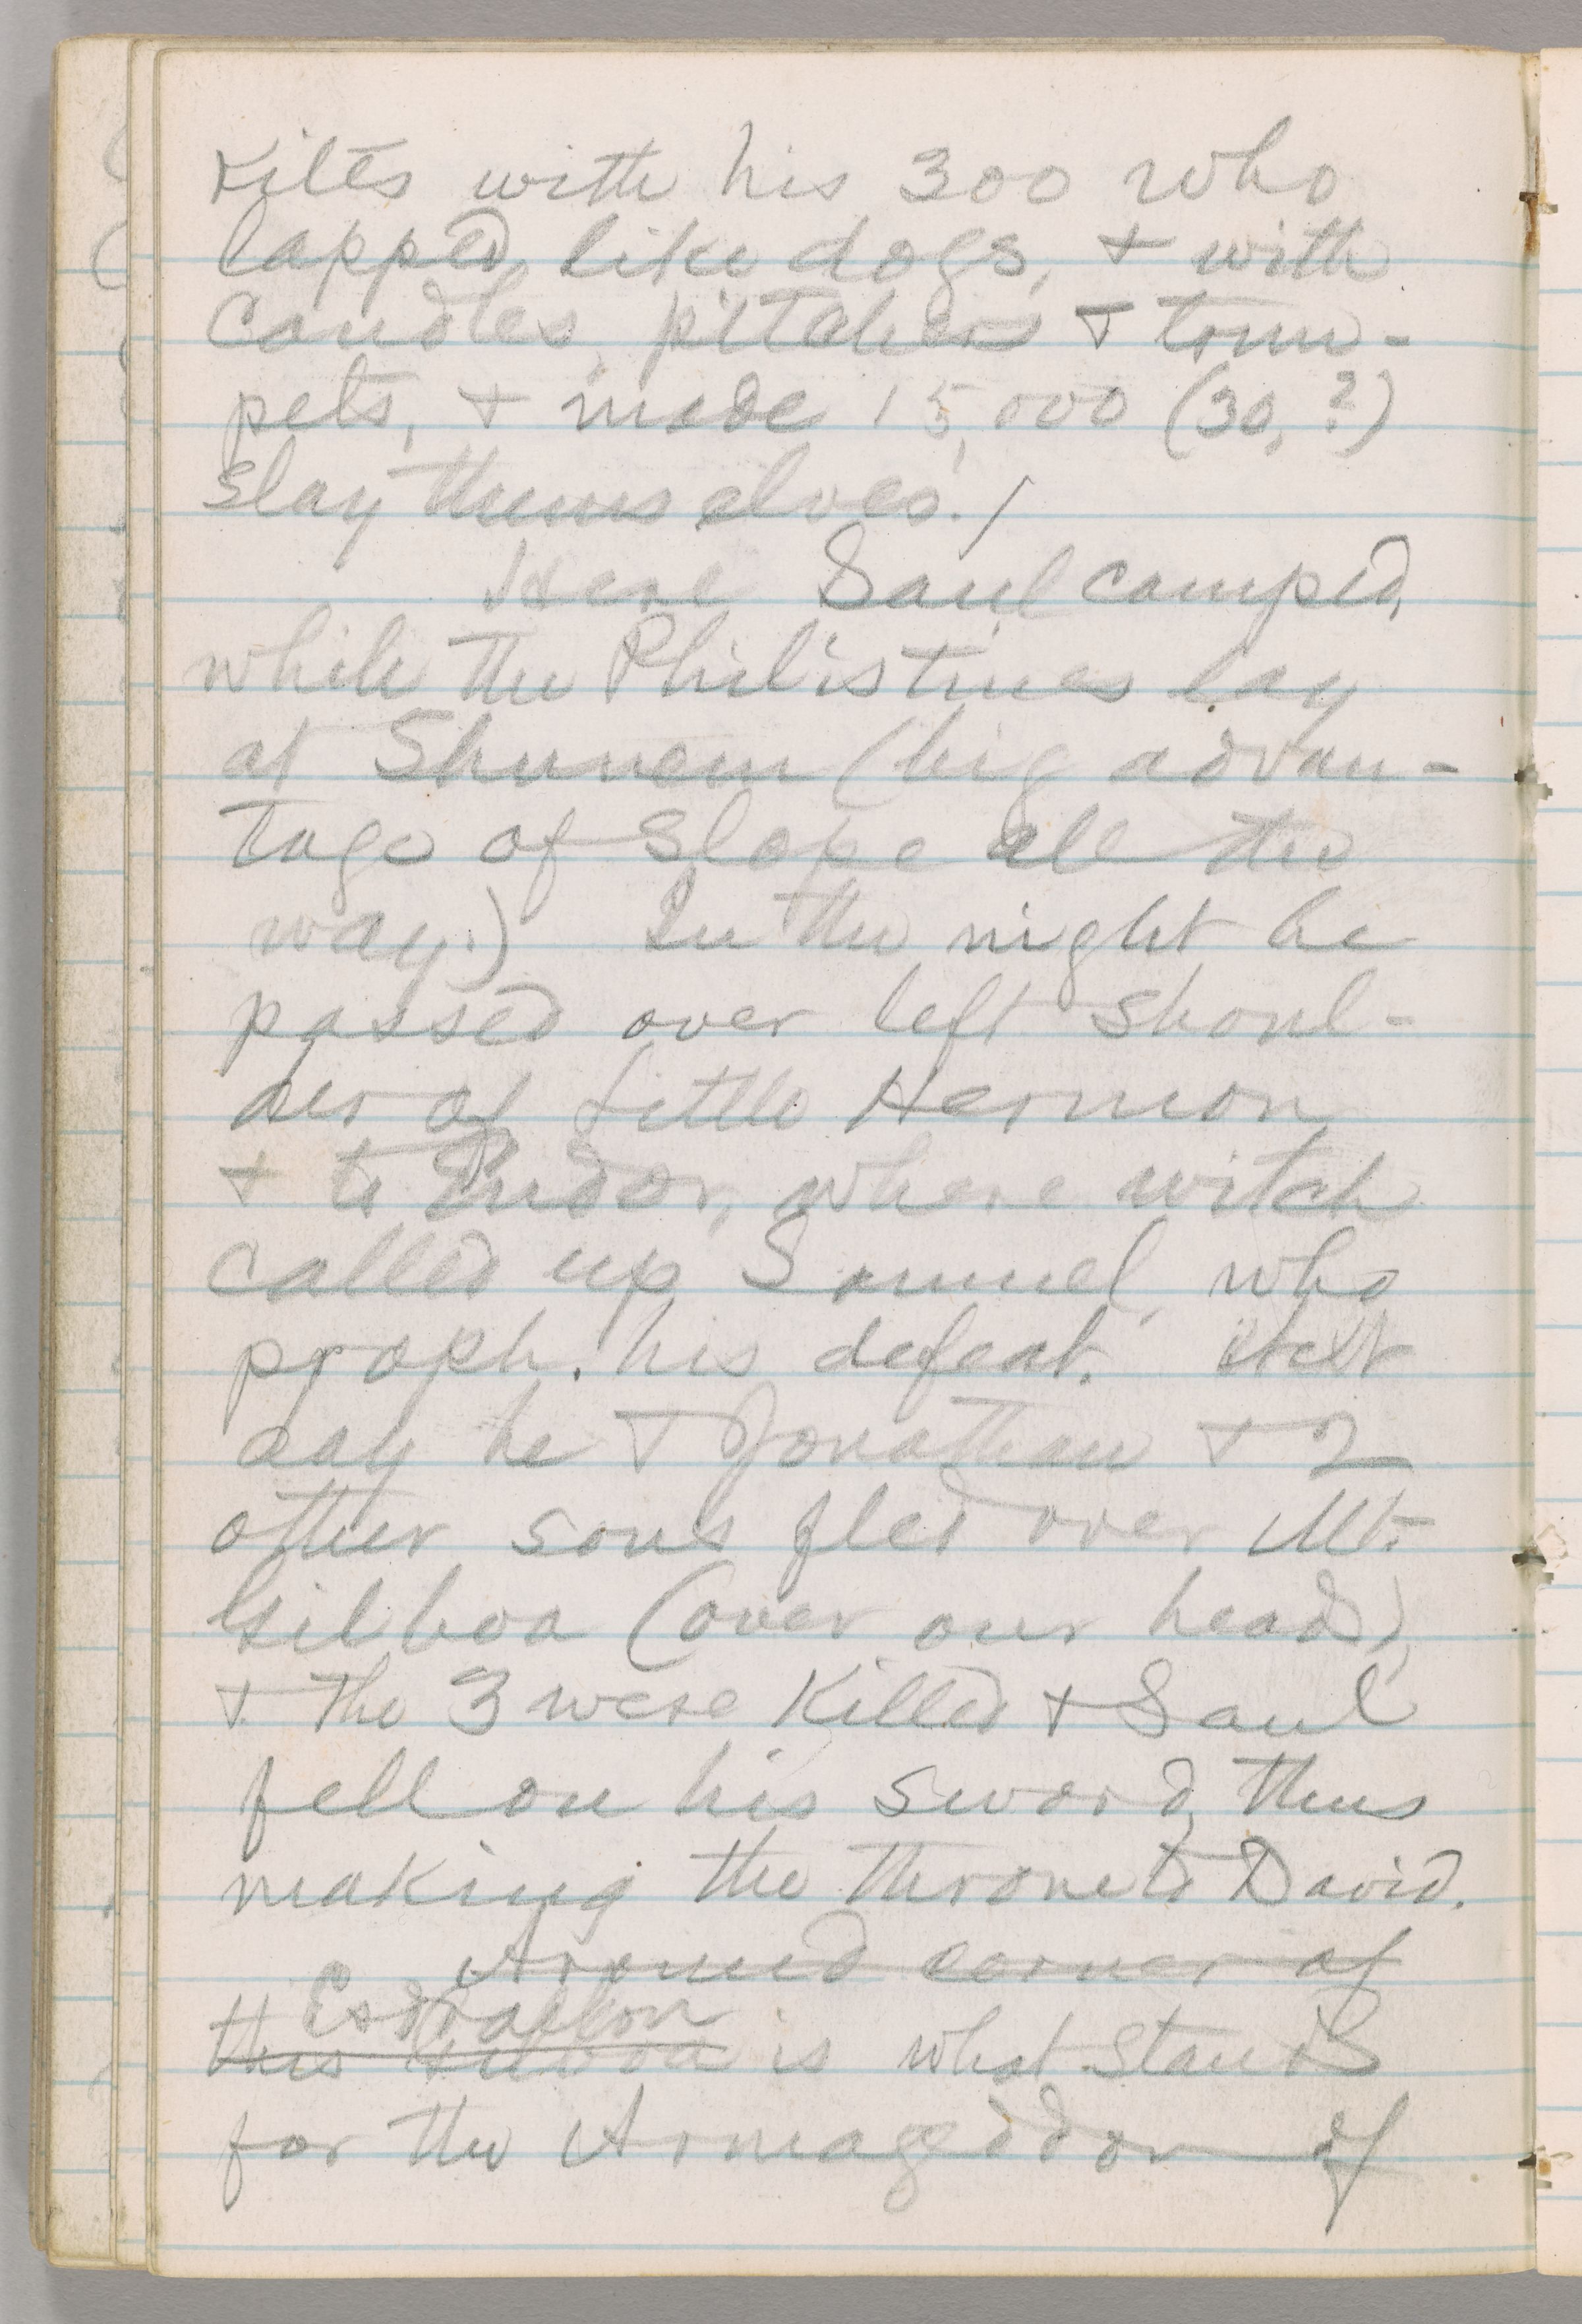 kites with his 300 who
lapped like dogs, + with
candles, pitchers + trum-
pets, + made 15,000 (30,?)
slay themselves!
Here Saul camped,
while the Philistines lay
at Shunem (big advan-
tage of slope all the
way.) In the night he
passed over left shoul-
der of Little Hermon
+ to Endor, where witch
called up Samuel, who
proph. his defeat. Next
day he + Jonathan + 2
other sons fled over Mt.
Gilboa (over our heads),
+ the 3 were killed + Saul
fell on his sword, thus
making the throne to David.
Around corner of
Esdraelon
this Gilboa is what stands
for the Armageddon of